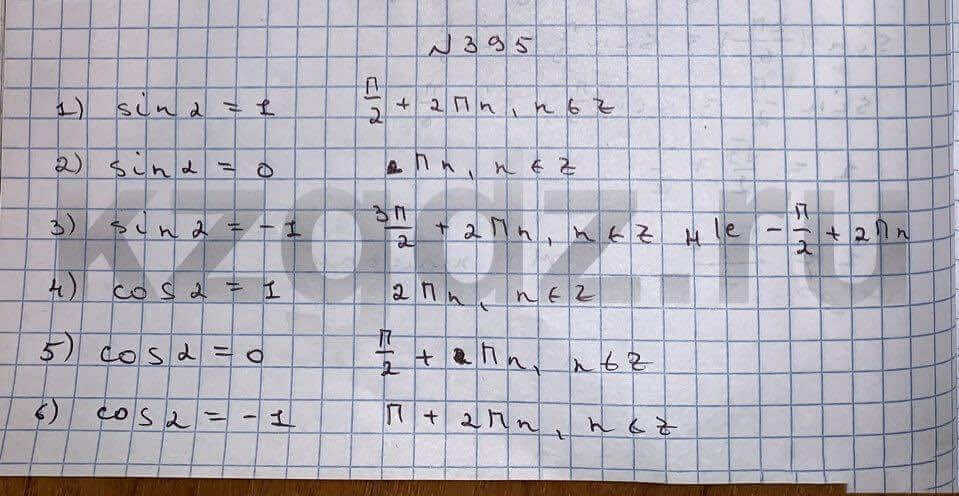 N 395
1) sin α = 1 П/2 + 2Пn, n ∈ Z
2) sin α = 0 Пn, n ∈ Z
3) sin α = -1 3П/2 + 2Пn, n ∈ Z -П/2 + 2Пn
4) cos α = 1 2Пn, n ∈ Z
5) cos α = 0 П/2 + Пn, n ∈ Z
6) cos α = -1 П + 2Пn, n ∈ Z
kzgdz.ru